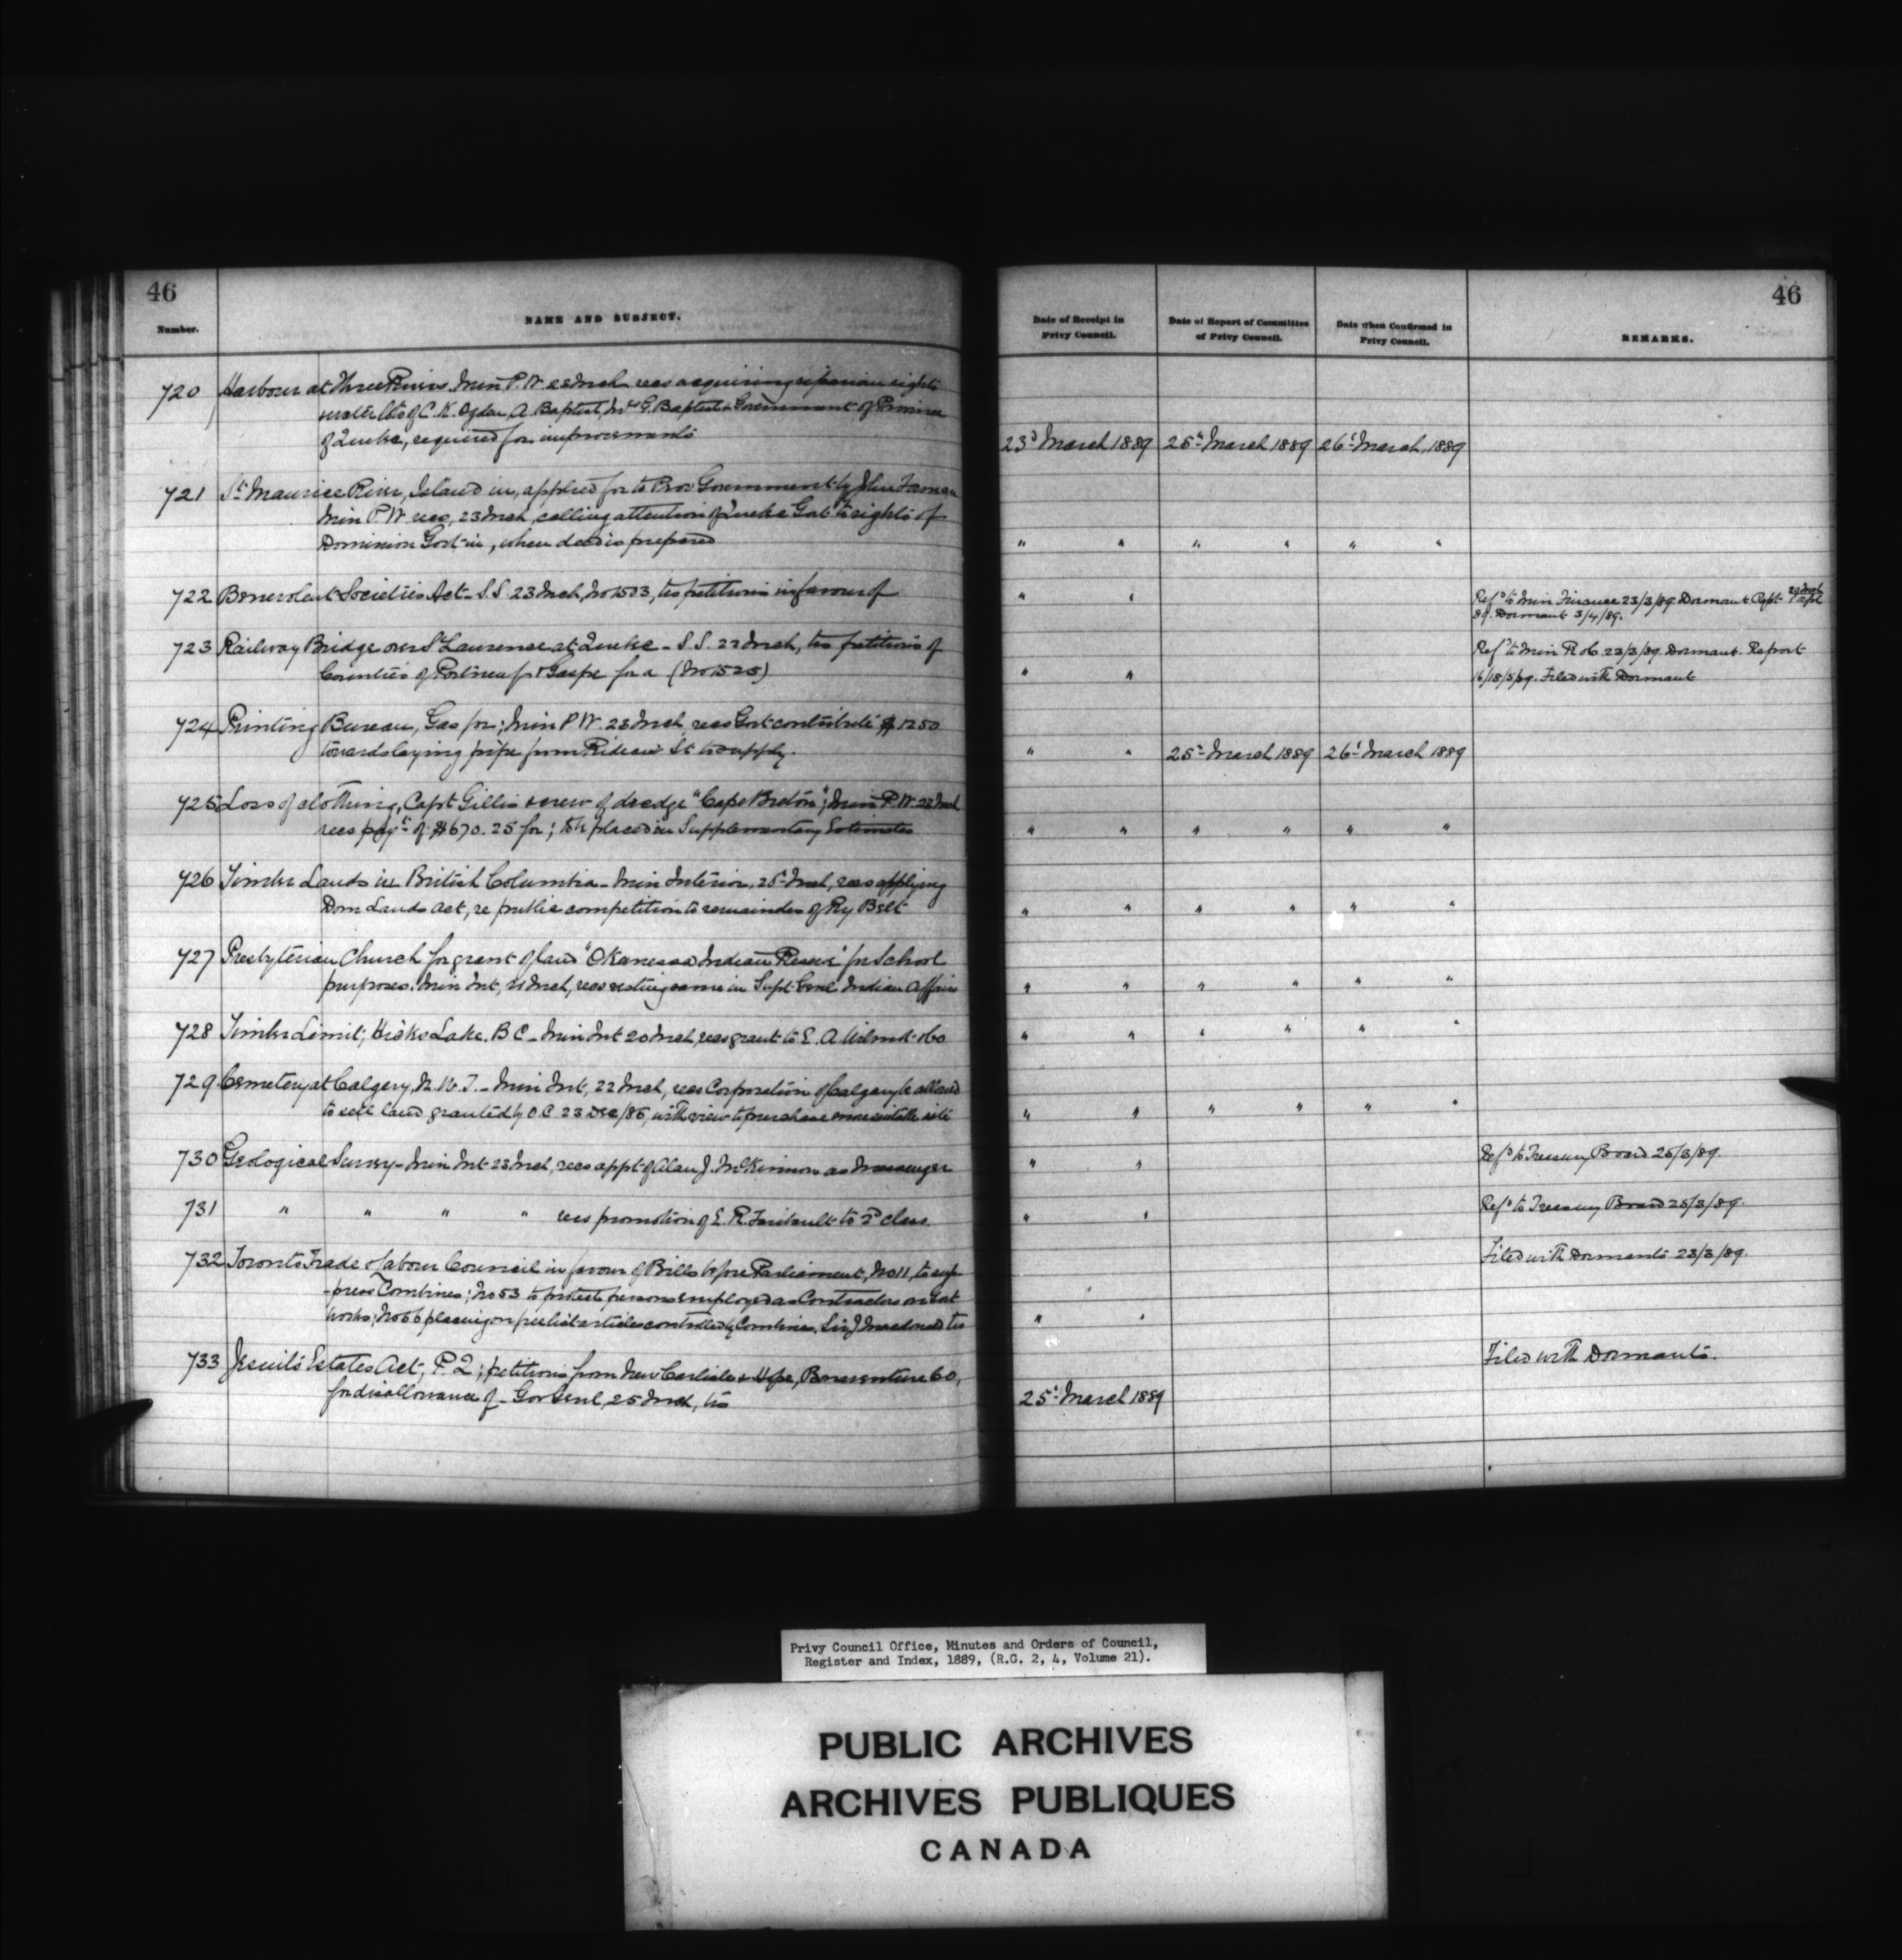 46
Number.
NAME AND SUBJECT.
720 Harbour at Three Rivers. Min P.W. 23 Mch recs acquiring riparian rights
water lots of C.K. Ogden, A. Baptist, Mrs G. Baptist & Government of Province
of Quebec, required for improvements
721 St Maurice River, Island in, applied for to Prov Government by John
Min P.W. recs, 23 Mch, calling attention of Quebec Govt to rights of
Dominion Govt in, when deed is prepared
722 Benevolent Societies Act - S.S. 23 Mch, No 1503, ts petitions in favour of
723 Railway Bridge over St Lawrence at Quebec - S.S. 22 Mch, ts petitions of
Counties of Portneuf & Gaspe for a (No 1525)
724 Printing Bureau, Gas for; Min P.W. 23 Mch, recs Govt contribute $1250
towards laying pipe from Rideau St to supply.
725 Loss of clothing, Capt Gillis & crew of dredge "Cape Breton"; Min P.W. 23 Mch
recs payt of $670.25 for; to be placed in Supplementary Estimates
726 Timber Lands in British Columbia - Min Interior, 25 Mch, recs applying
Dom Lands Act, re public competition to remainder of Ry Belt
727 Presbyterian Church for grant of land "Okanessa Indian Reserve" for School
purposes. Min Int, 21 Mch, recs vesting same in Supt Genl Indian Affairs
728 Timber Limit, Hicks Lake. B C - Min Int 20 Mch, recs grant to E. A.
729 Cemetery at Calgary, N.W.T. - Min Int, 22 Mch, recs Corporation of Calgary be allowed
to sell land granted by O.C 23 Dec/85, with view to purchase more suitable site
730 Geological Survey - Min Int 23 Mch, recs appt of Alan J. McKinnon as Messenger
731 " " " " recs promotion of E. R. Faribault to 2d class.
732 Toronto Trade & Labour Council in favour of Bills before Parliament, No 11, to sup-
-press Combines; No 53 to protect persons employed as Contractors on Govt
works; No 56 placing on free list articles controlled by Combines. Sir J Macdonald ts
733 Jesuits Estates Act, P.Q; petitions from New Carlisle & Hope, Bonaventure Co,
for disallowance of - Gov Genl, 25 Mch, ts
46
Date of Receipt in
Privy Council.
Date of Report of Committee
of Privy Council.
Date when Confirmed in
Privy Council.
REMARKS.
23d March 1889 25th March 1889 26t March, 1889
" " " " " "
" " Refd to Min Finance 23/3/89 Dormant Rept
89. Dormant 3/4/89.
Refd to Min R & C 23/3/89. Dormant. Report
" " 16/18/5/89. Filed with Dormant
" " 25t March 1889 26t March 1889
" " " " " "
" " " " " "
" " " " " "
" " " " " "
" " " " " "
" " Refd to Treasury Board 25/3/89.
" " Refd to Treasury Board 25/3/89.
Filed with Dormants 23/3/89.
" "
Filed with Dormants.
25t March 1889
Privy Council Office, Minutes and Orders of Council,
Register and Index, 1889, (R.G. 2, 4, Volume 21).
PUBLIC ARCHIVES
ARCHIVES PUBLIQUES
CANADA